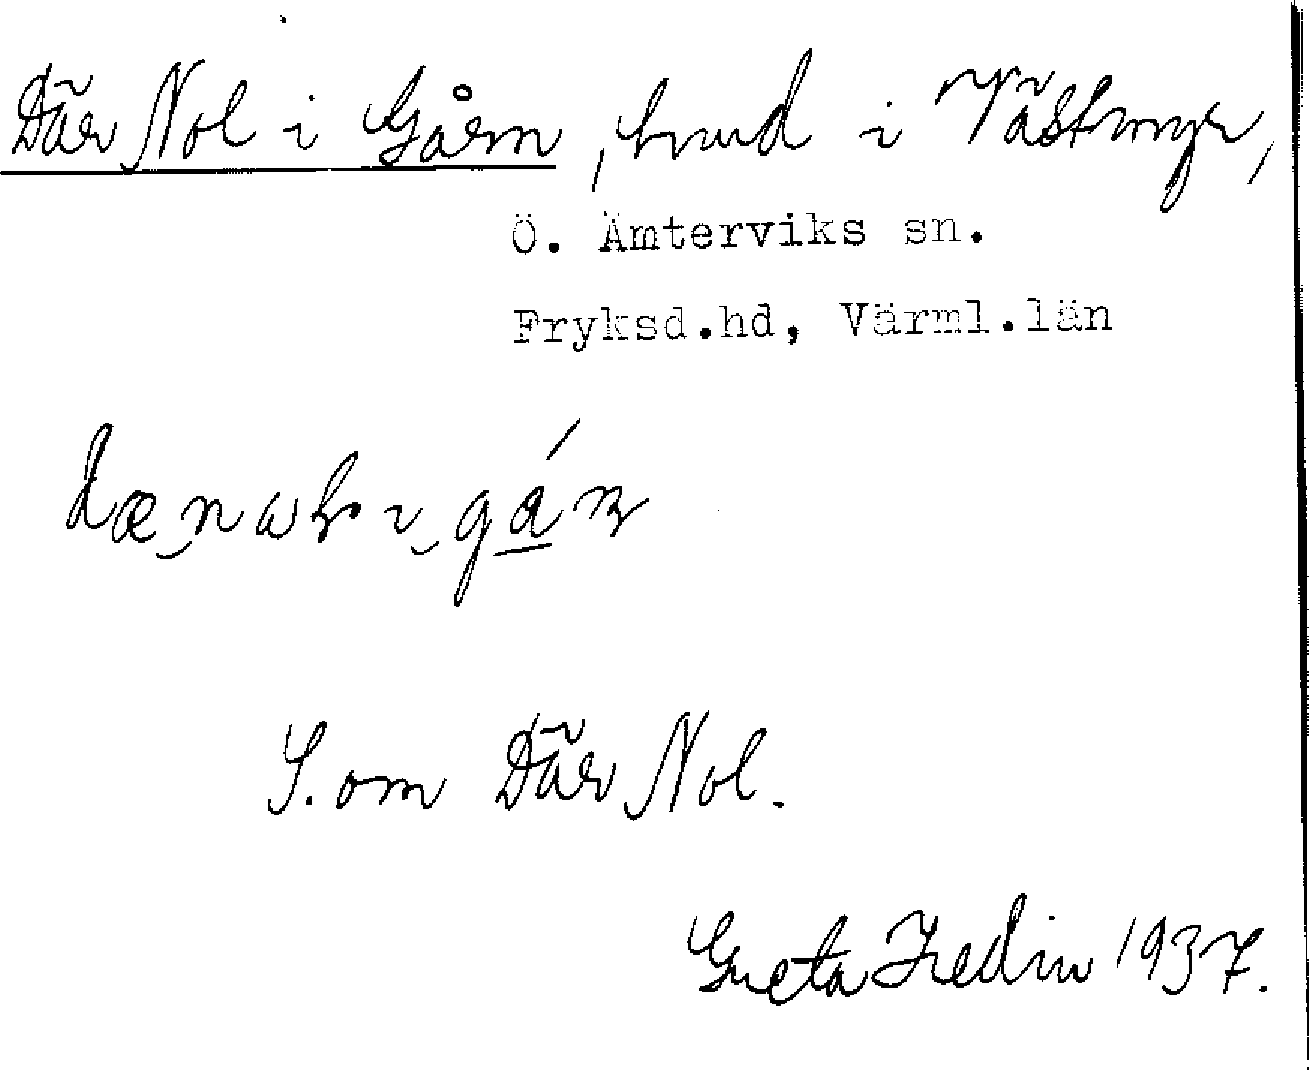 Där Nol i Gårn, hmd i Västmyr,
Ö. Ämterviks sn.
Fryksd.hd, Värml.län
S. om Där Nol.
Greta Hedin 1937.